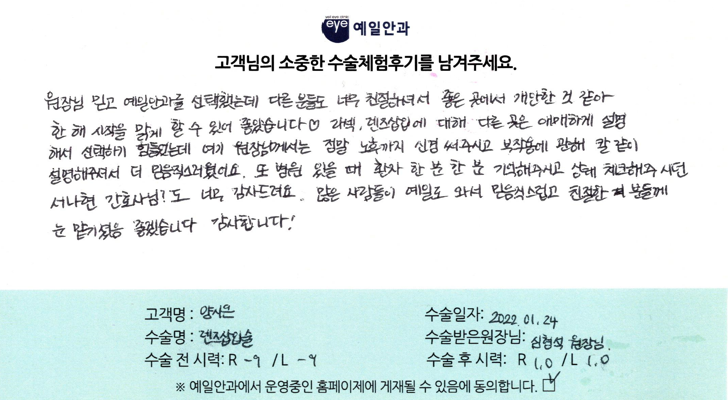 eye 예일안과
고객님의 소중한 수술체험후기를 남겨주세요.
원장님 믿고 예일안과를 선택했는데 다른 분들도 너무 친절하셔서 좋은 곳에서 개안한 것 같아
한 해 시작을 맑게 할 수 있어 좋았습니다♡ 라섹, 렌즈삽입에 대해 다른 곳은 애매하게 설명
해서 선택하기 힘들었는데 여기 원장님께서는 정말 노후까지 신경 써주시고 부작용에 관해 잘 같이
설명해주셔서 더 믿음직스러웠어요. 또 병원 왔을 때 환자 한 분 한 분 기억해주시고 상태 체크해주시던
서나현 간호사님?도 너무 감사드려요. 많은 사람들이 예일로 와서 믿음직스럽고 친절한 분들께
눈 맡기셨음 좋겠습니다 감사합니다!
고객명 : 양시은 수술일자: 2022.01.24
수술명 : 렌즈삽입술 수술받은원장님: 원장님.
수술 전 시력: R -9 / L -9 수술 후 시력: R 1.0 / L 1.0
※ 예일안과에서 운영중인 홈페이제에 게재될 수 있음에 동의합니다. ☑